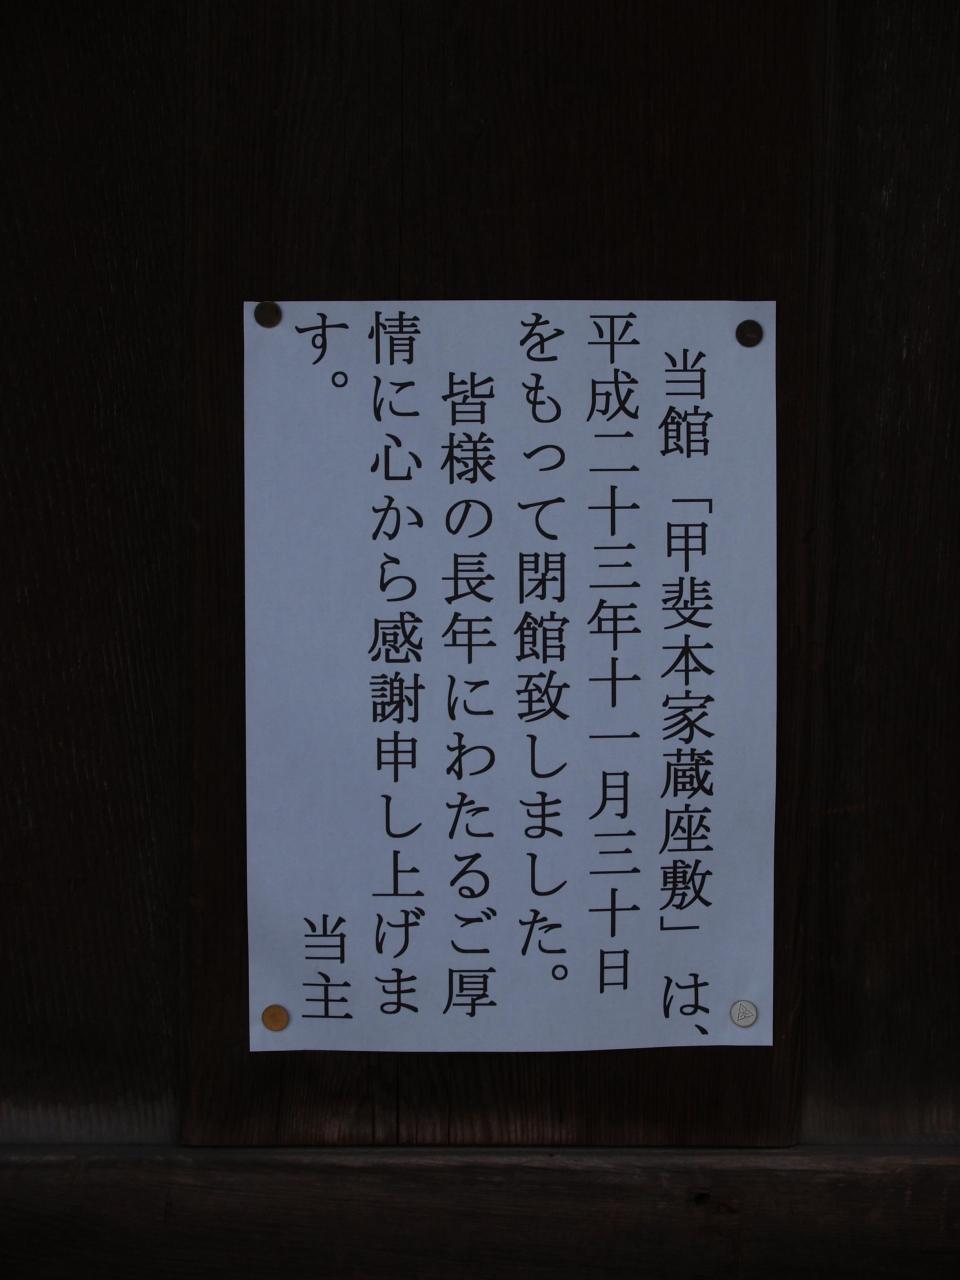 当館「甲斐本家蔵座敷」は、
平成二十三年十一月三十日
をもって閉館致しました。
皆様の長年にわたるご厚
情に心から感謝申し上げま
す。
当主